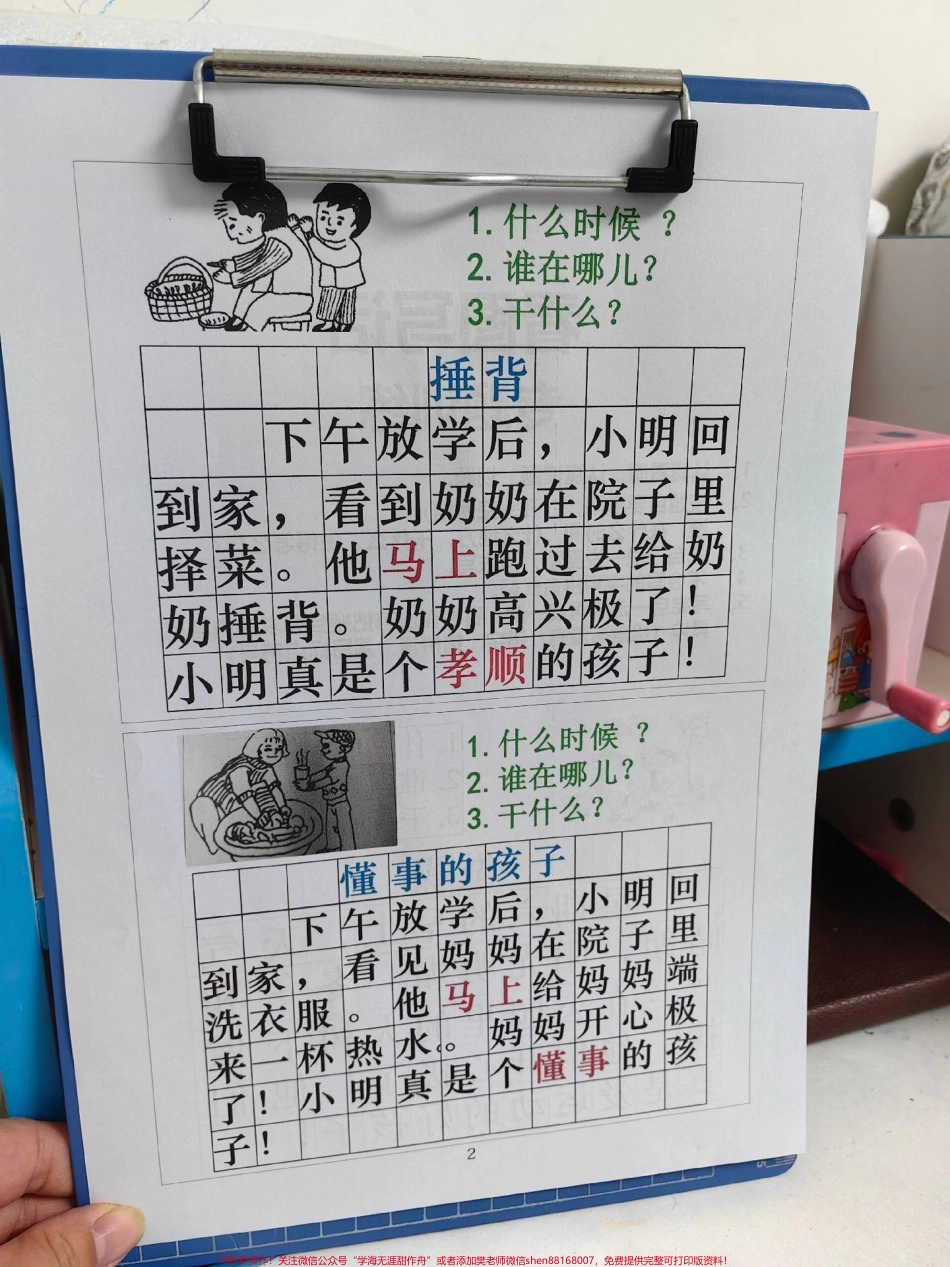 1. 什么时候 ？
2. 谁在哪儿？
3. 干什么？
捶背
下午放学后，小明回
到家，看到奶奶在院子里
择菜。他马上跑过去给奶
奶捶背。奶奶高兴极了！
小明真是个孝顺的孩子！
1. 什么时候 ？
2. 谁在哪儿？
3. 干什么？
懂事的孩子
下午放学后，小明回
到家，看见妈妈在院子里
洗衣服。他马上给妈妈端
来一杯热水。妈妈开心极
了！小明真是个懂事的孩
子！
2
关注微信公众号“学海无涯甜作舟”或者添加樊老师微信shen88168007，免费提供完整可打印版资料！